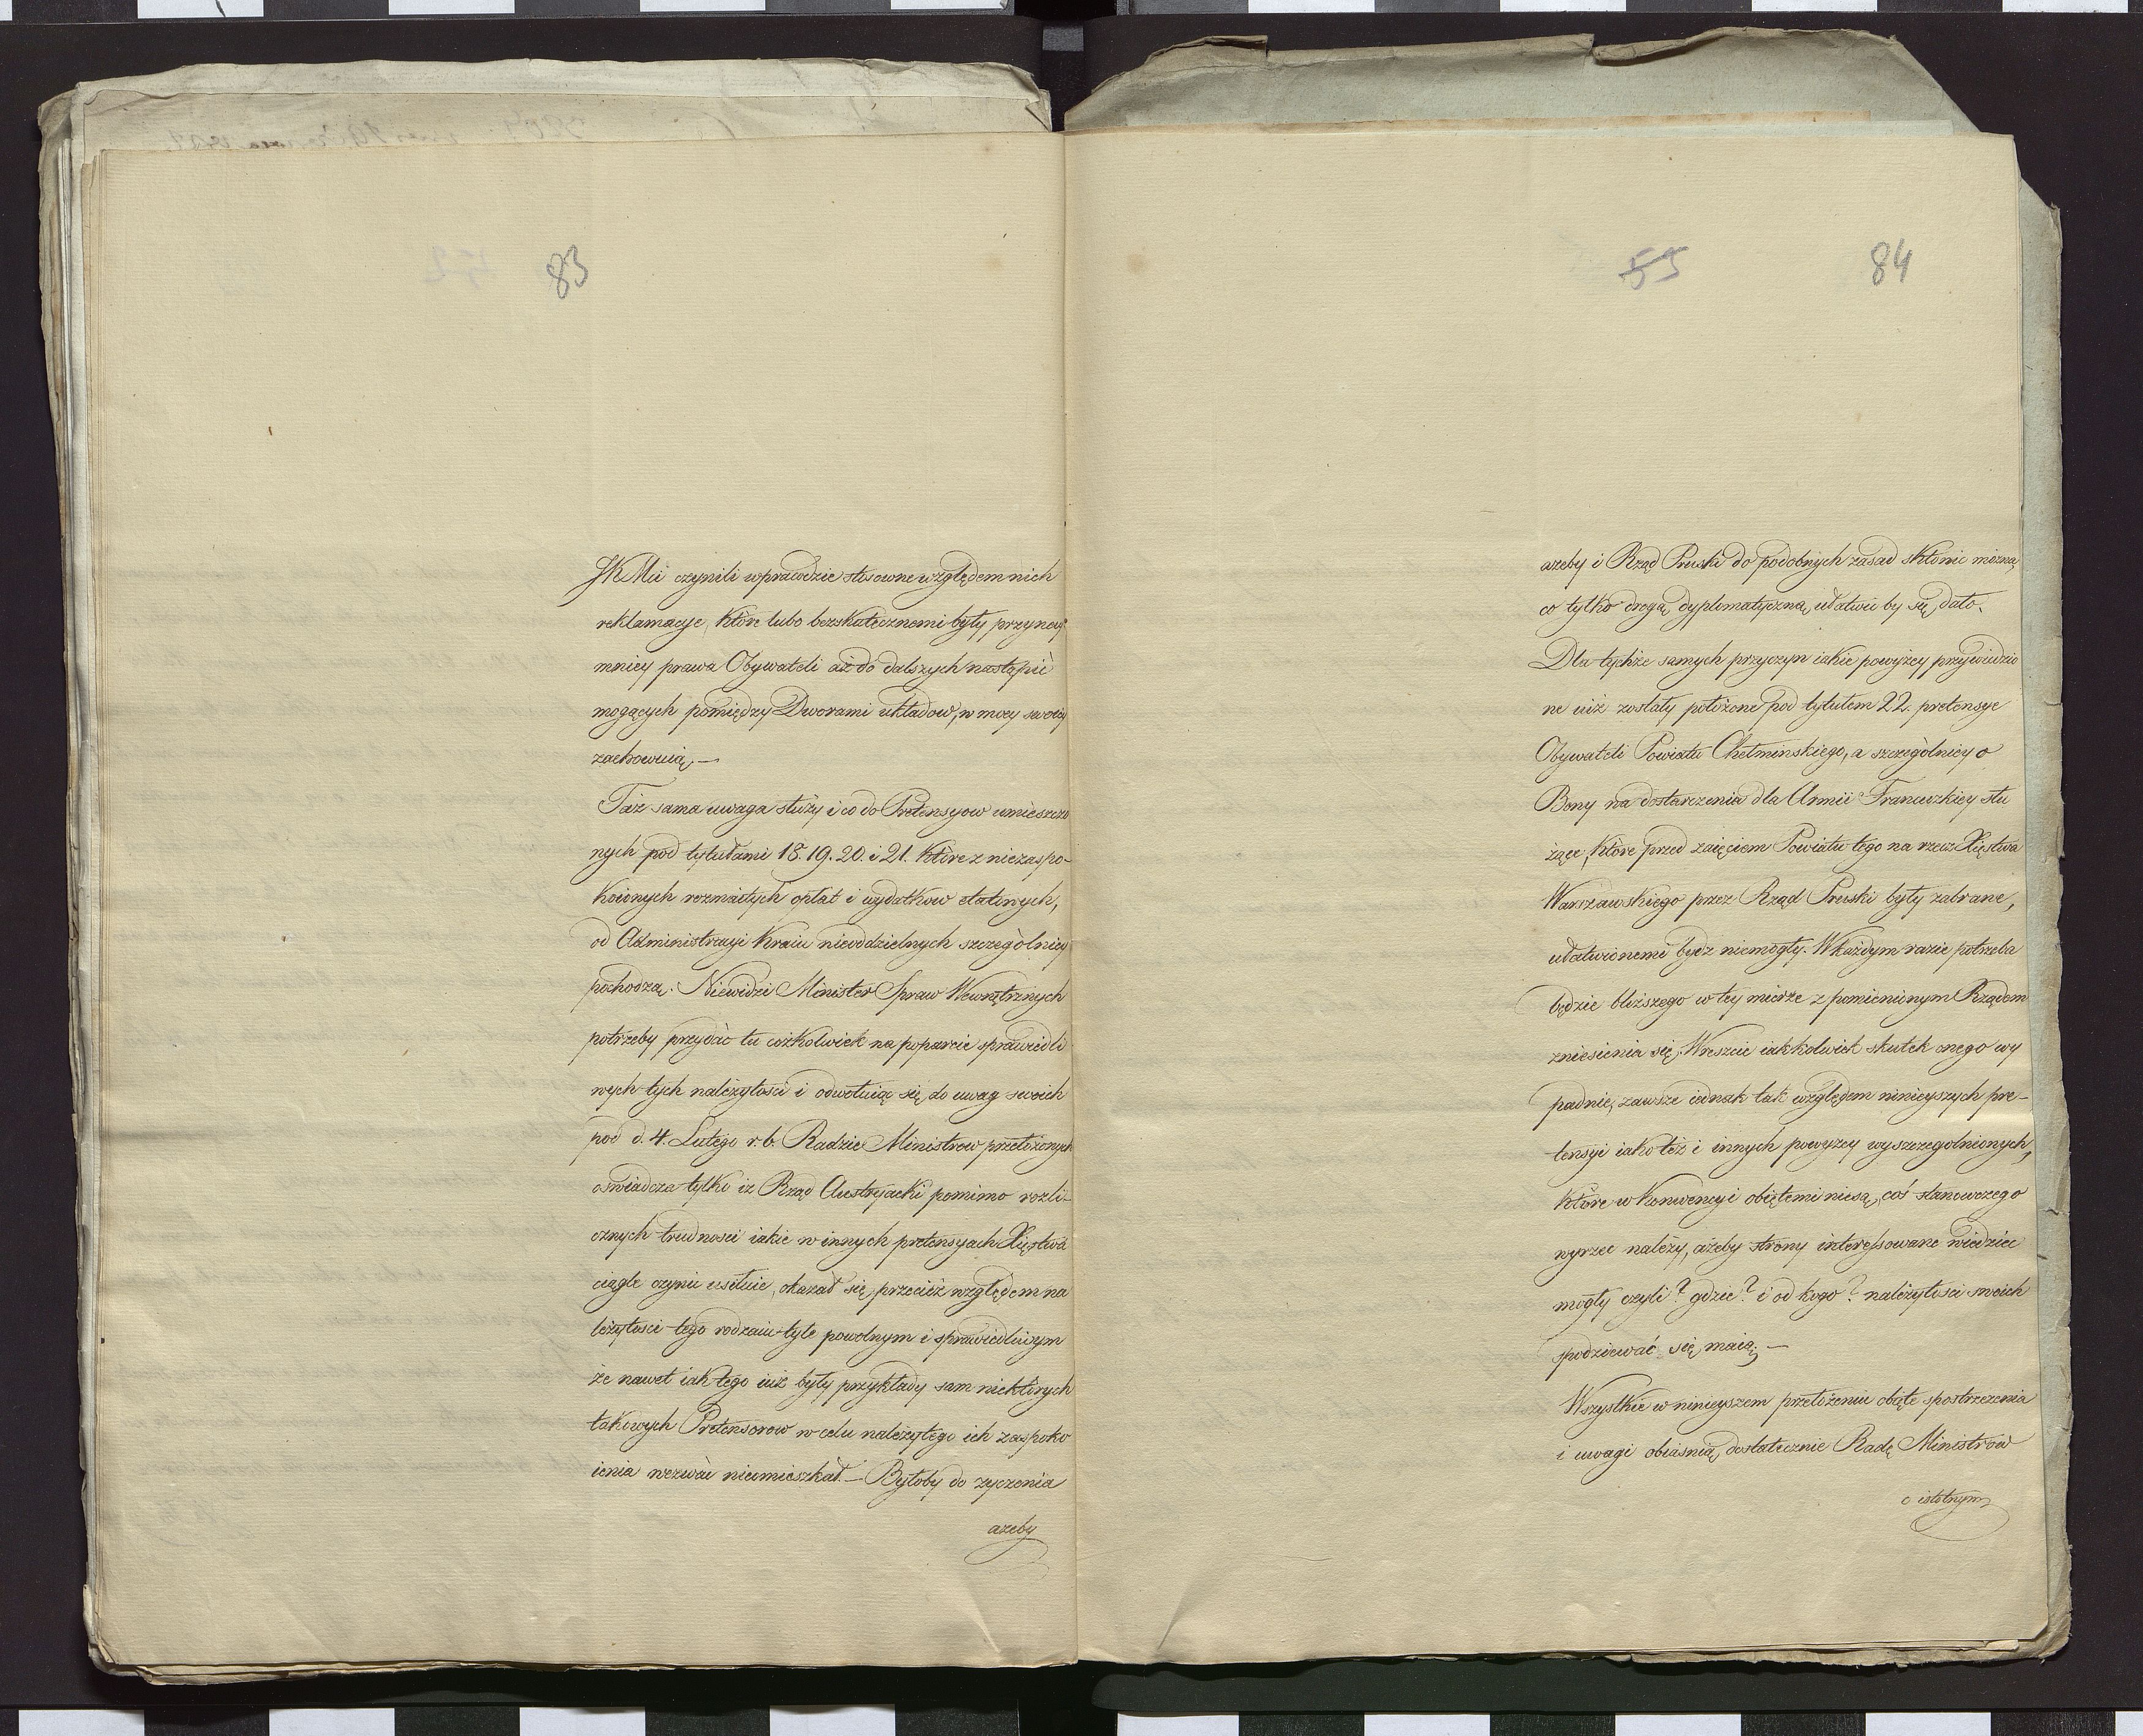 83
JKMci czynili wprawdzie stosowne względem nich
reklamacye, które lubo bezskutecznemi były przynay
mniey prawa Obywateli aż do dalszych nastąpić
mogących pomiędzy Dworami układow, w mocy swoiey
zachowuią. —
Taż sama uwaga służy i co do Pretensyow umieszczo
nych pod tytułami 18. 19. 20. i 21. które z niezaspo-
koionych rozmaitych opłat i wydatkow etatnych,
od Administracyi Kraiu nieoddzielnych szczególniey
pochodzą. Niewidzi Minister Spraw Wewnętrznych
potrzeby przydać tu cożkolwiek na poparcie sprawiedli
wych tych należytości i odwołuiąc się do uwag swoich
pod d. 4. Lutego r. b. Radzie Ministrow przełożonych
oswiadcza tylko iż Rząd Austryacki pomimo rozli-
cznych trudnosci iakie w innych pretensyach Xięstwa
ciągle czynić usiłuie, okazał się przecież względem na
leżytosci tego rodzaiu tyle powolnym i sprawiedliwym
że nawet iak tego iuż były przykłady sam niektórych
takowych Pretensorow w celu należytego ich zaspoko
ienia wezwać nieomieszkał. — Byłoby do zyczenia
azeby
55
84
azeby i Rząd Pruski do podobnych zasad skłonic można
co tylko drogą dyplomatyczną ułatwić by się dało.
Dla tychże samych przyczyn iakie powyżey przywiedzio
ne iuż zostały położone pod tytułem 22. pretensye
Obywateli Powiatu Chełminskiego, a szczególniey o
Bony na dostarczenia dla Armii Francuzkiey słu
żące, które przed zaięciem Powiatu tego na rzecz Xięstwa
Warszawskiego przez Rząd Pruski były zabrane,
ułatwionemi bydz niemogły. W każdym razie potrzeba
będzie bliższego w tey mierze z pomienionym Rządem
zniesienia się. Wreszcie iakkolwiek skutek onego wy
padnie, zawsze iednak tak względem ninieyszych pre-
tensyi iako też i innych powyżey wyszczegolnionych,
które w Konwencyi obiętemi niesą, coś stanowczego
wyrzec należy, ażeby strony interessowane wiedziec
mogły czyli? gdzie? i od kogo? należytosci swoich
spodziewać się maią; —
Wszystkie w ninieyszem przełożeniu obięte spostrzezenia
i uwagi obiasnią dostatecznie Radę Ministrów
o istotnym